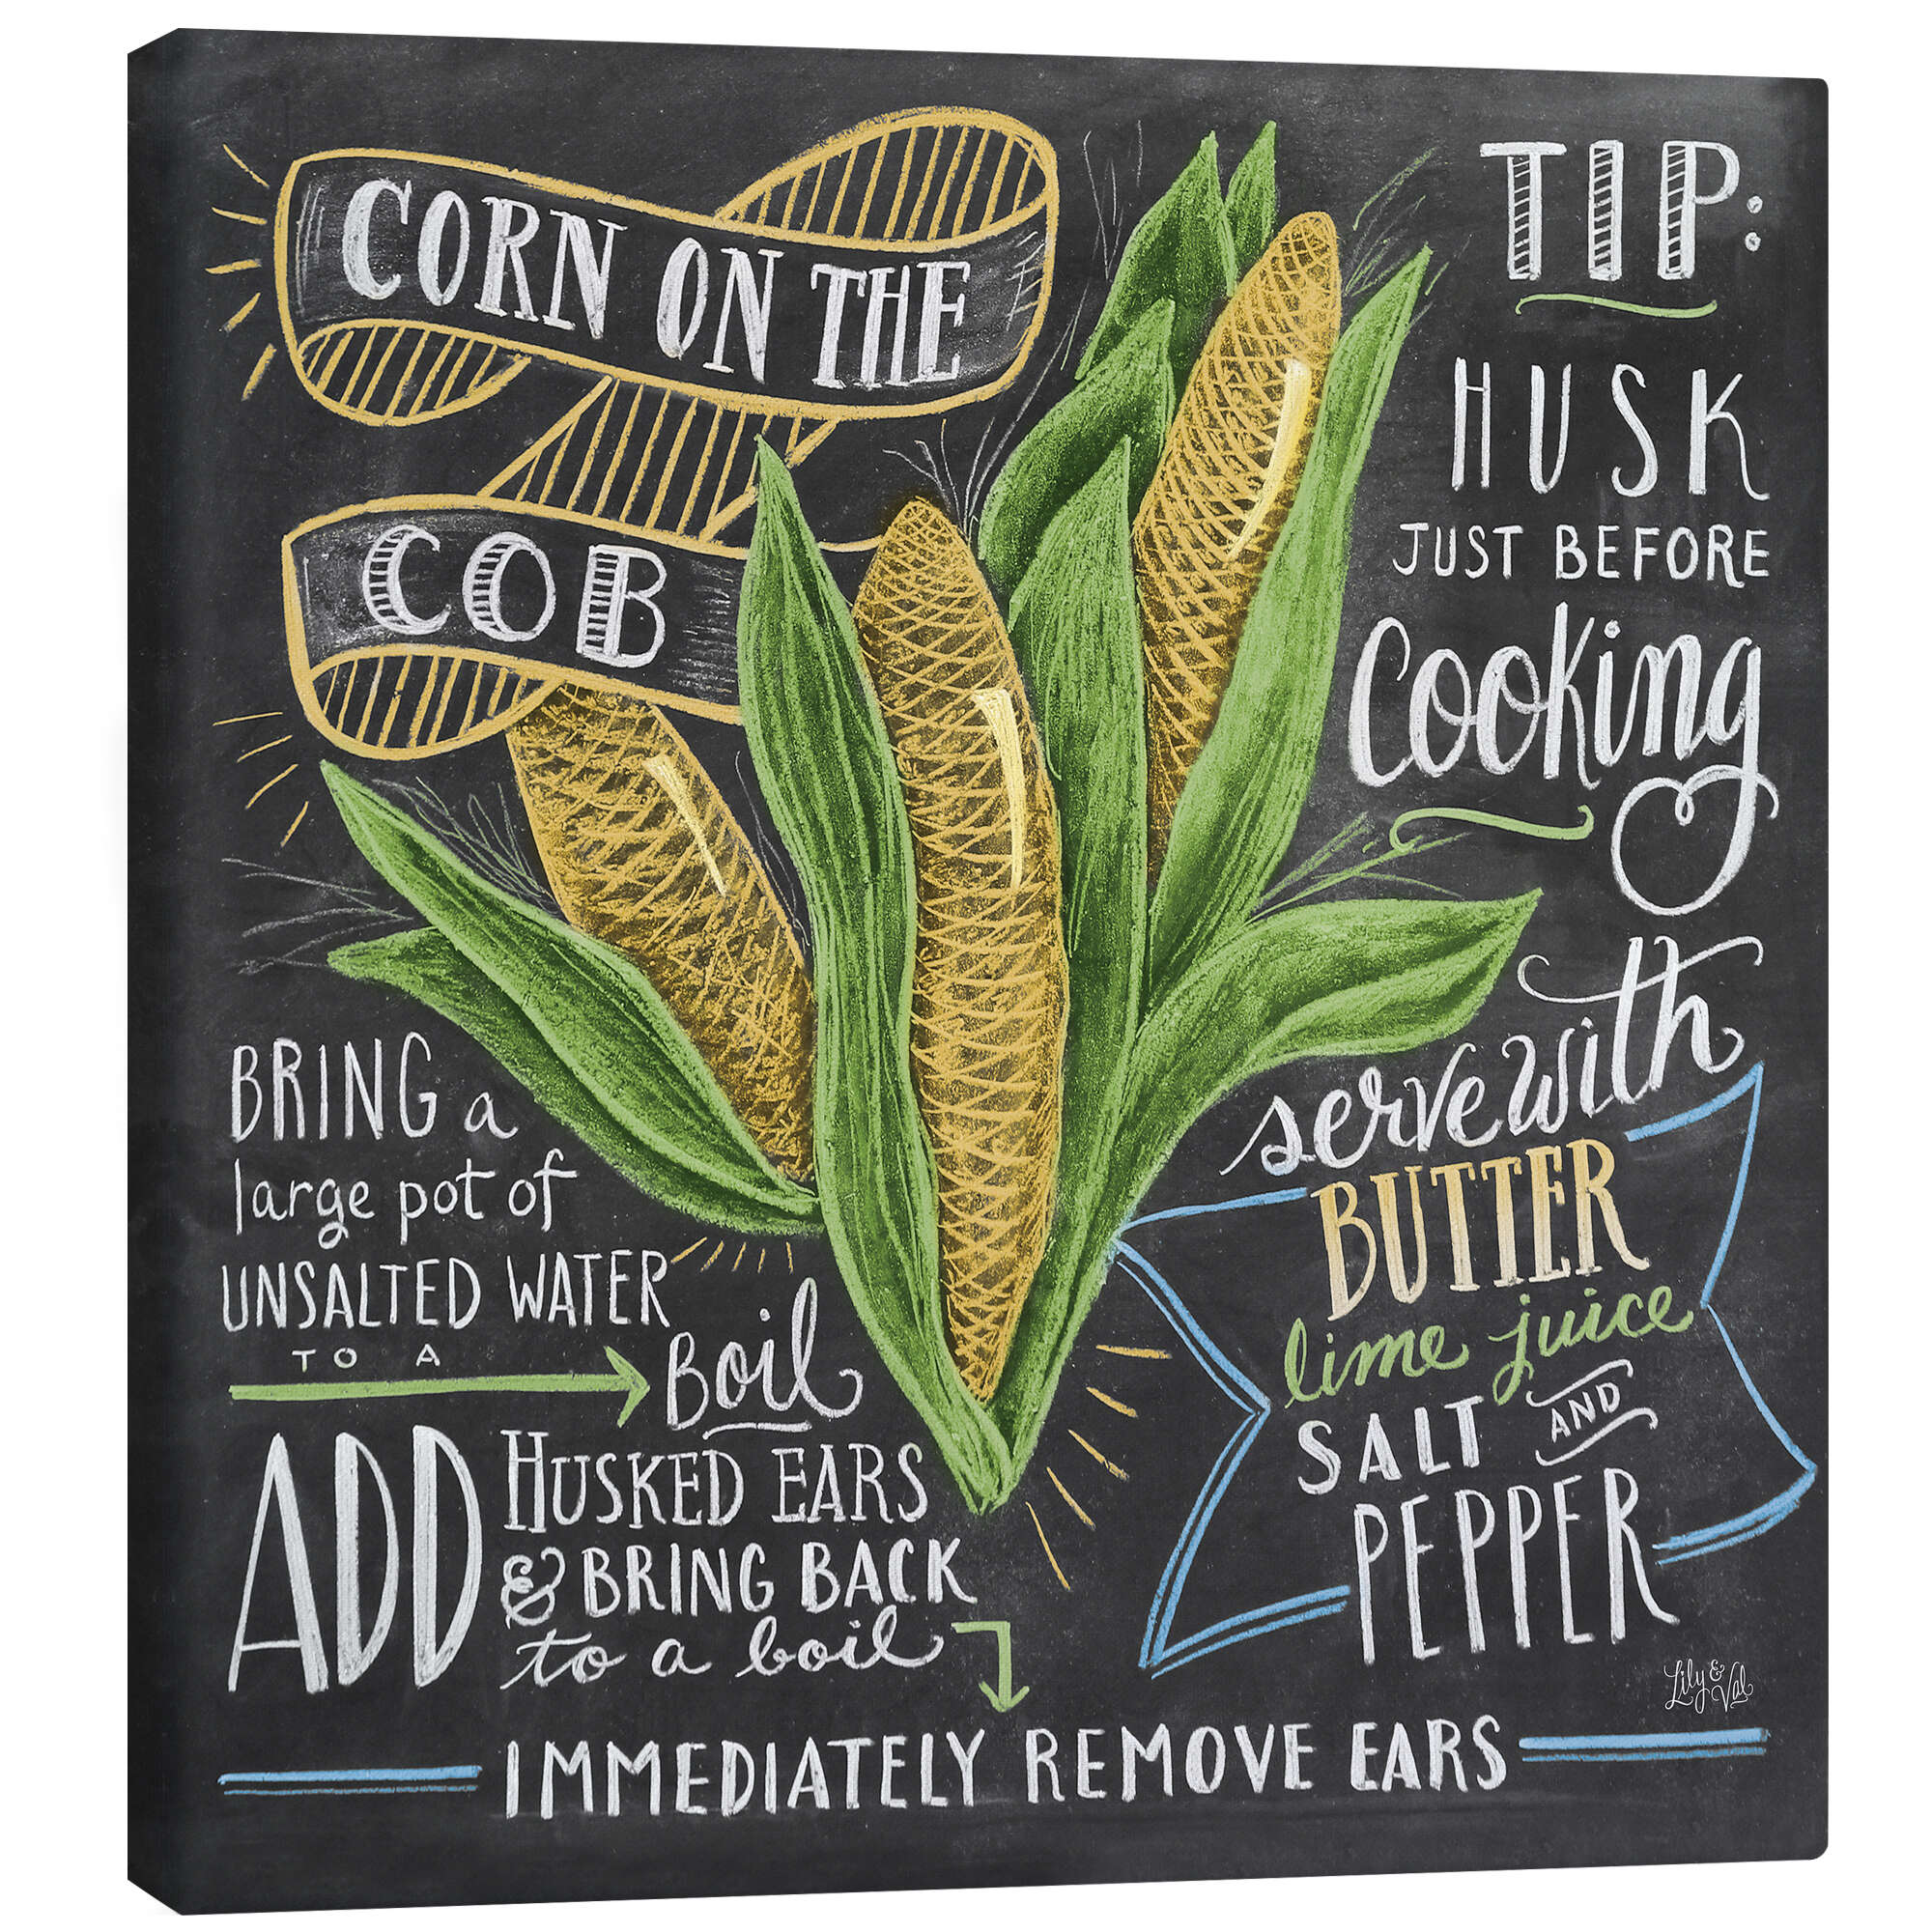 CORN ON THE
COB
BRING a
large pot of
UNSALTED WATER
TO A
Boil
ADD
HUSKED EARS
& BRING BACK
to a boil
IMMEDIATELY REMOVE EARS
TIP:
HUSK
JUST BEFORE
Cooking
serve with
BUTTER
lime juice
SALT AND
PEPPER
Lily & Val